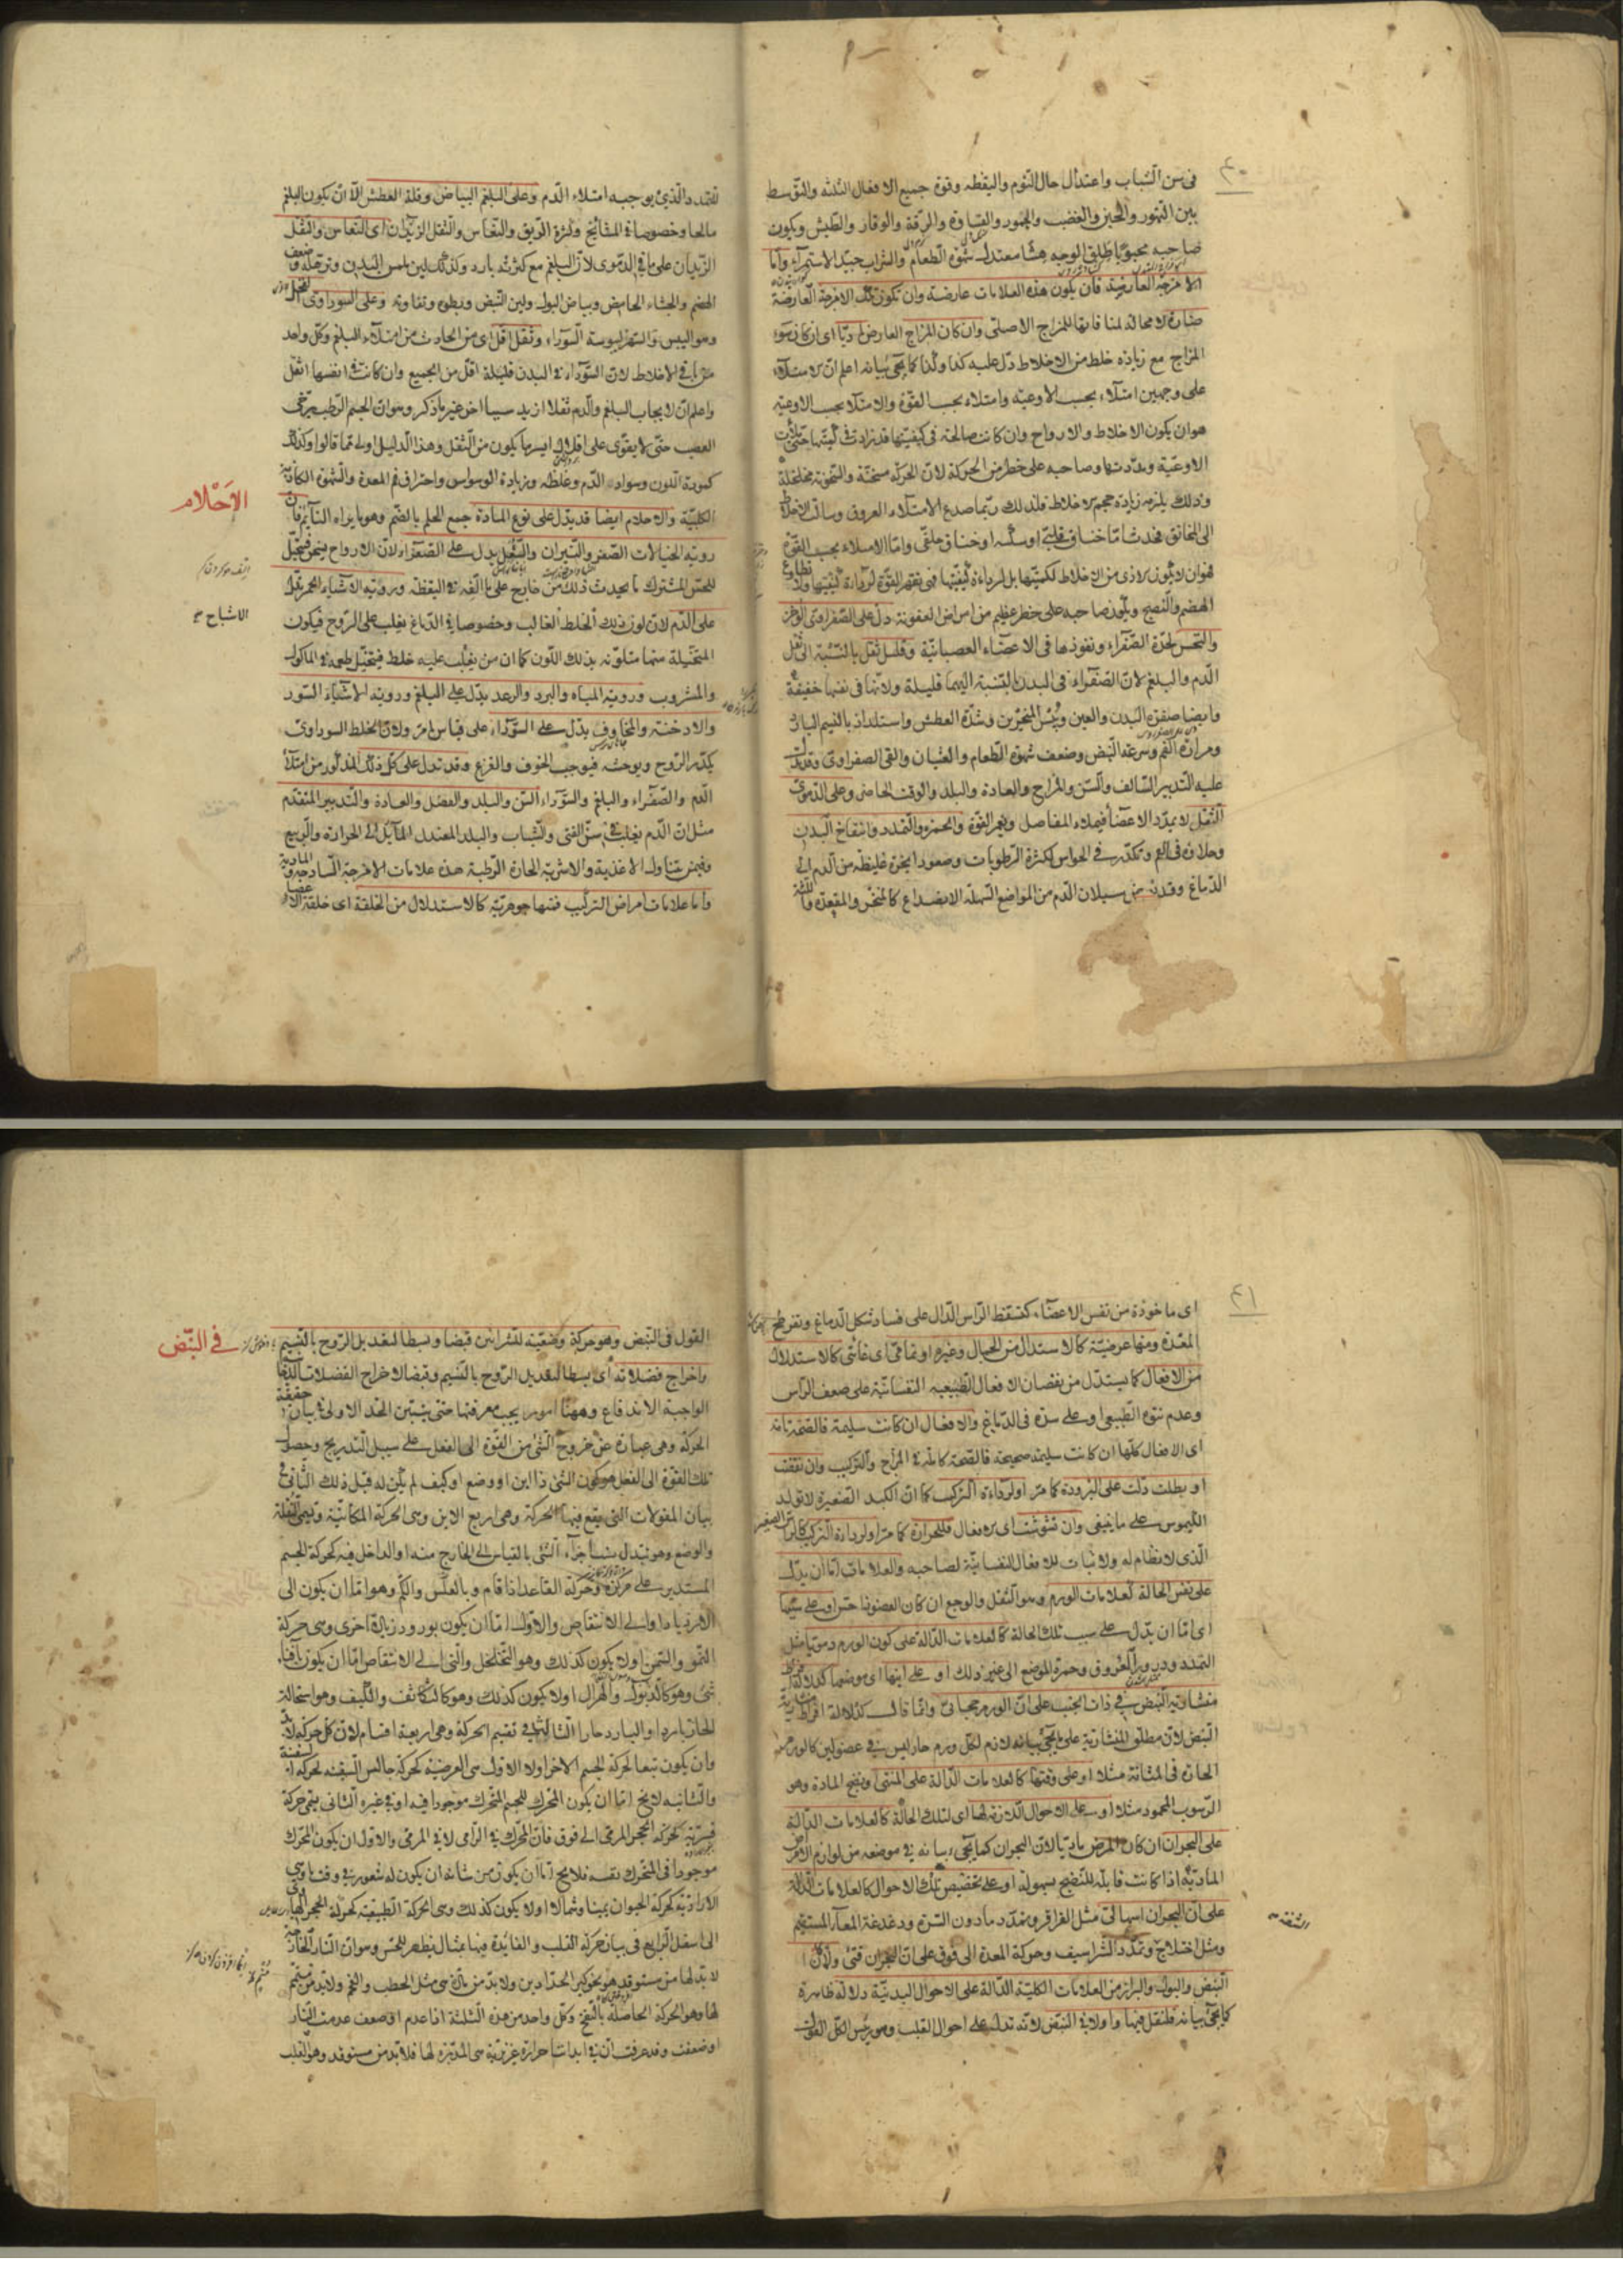 ٤٠
فى سن الشباب واعتدال حال النوم واليقظه وقوة جميع الافعال الثلثه والتوسط
بين التهور والجبن والغضب والخمود والقساوة والرقة والوقار والطيش ويكون
صاحبه محبوبا طلق الوجه هشا معتدل شهوة الطعام والشراب جيد الاستمراء واما
الامزجة العارضة فان يكون هذه العلامات عارضة وان تكون تلك الامزجة العارضة
ضارة لا محالة لمنافاتها للمزاج الاصلى وان كان المزاج العارض ماديا اى ان كان سوء
المزاج مع زيادة خلط من الاخلاط دل عليه كذا وكذا كما يجئ بيانه اعلم ان الامتلاء
على وجهين امتلاء بحسب الاوعيه وامتلاء بحسب القوة والامتلا بحسب الاوعيه
هو ان يكون الاخلاط والارواح وان كانت صالحة فى كيفيتها قد زادت فى كميتها حتى ملأت
الاوعية ومددتها وصاحبه على خطر من الحركة لان الحركة مسخنة والسخونة مخلخلة
وذلك يلزمه زيادة حجم الاخلاط فلذلك ربما صدع الامتلاء العروق وسالت الاخلاط
الى المخانق فحدث اما خناق قلبى او سكته او خناق حلقى واما الامتلاء بحسب القوة
فهو ان لا يكون الاذى من الاخلاط لكميتها بل لرداءة كيفيتها فهى تقهر القوة لرداءة كيفيتها ولا تطاوع
الهضم والنضج ويكون صاحبه على خطر عظيم من امراض العفونة دل على الصفراوى الوخز
والنخس لحدة الصفراء ونفوذها فى الاعضاء العصبانية وقلل ثقل بالنسبة الى ثقل
الدم والبلغم لان الصفراء فى البدن بالنسبة اليهما قليلة ولانها فى نفسها خفيفة
وايضا صفرة البدن والعين ويبس المنخرين وشدة العطش واستلذاذ بالنسيم البارد
ومرارة الفم وسرعة النبض وضعف شهوة الطعام والغثيان والقئ الصفراوى وقد يدل
عليه التدبير السالف والسن والمزاج والعادة والبلد والوقت الحاضر وعلى الدموى
الثقل لا يمدد الاعضا فيملاء المفاصل ويغمر القوة والحمرة والتمدد وانتفاخ البدن
وحلاوة فى الفم وتكدر فى الحواس لكثرة الرطوبات وصعود ابخرة غليظه من الدم الى
الدماغ وقد يدل سيلان الدم من المواضع السهلة الانصداع كالمنخر والمقعدة واللثة
للتمدد الذى يوجبه امتلاء الدم وعلى البلغم البياض وقلة العطش الا ان يكون البلغم
مالحا وخصوصا فى المشائخ وكثرة الريق والنعاس والثقل الزيدان اى النعاس والثقل
الزيدان على ما فى الدموى لان البلغم مع كثرته بارد وكذلك لين ملمس البدن وترهله وضعف
الهضم والجشاء الحامض وبياض البول ولين النبض وبطوه وتفاوته وعلى السوداوى القحل
وهو اليبس والسهر ليبوسة السوداء وثقل اقل اى من الحادث من امتلاء البلغم وكل واحد
من باقى الاخلاط لان السوداء فى البدن قليلة اقل من الجميع وان كانت فى انفسها اثقل
واعلم ان لايجاب البلغم والدم ثقلا ازيد سببا اخر غير ما ذكر وهو ان الجسم الرطب يرخى
العصب حتى لا يقوى على اقلال ايسر ما يكون من الثقل وهذا الدليل اولى مما قالوا وكذلك
كمودة اللون وسواد الدم وغلظه وزيادة الوسواس واحتراق فم المعدة والشهوة الكاذبة
الكلبية والاحلام ايضا قد يدل على نوع المادة جمع الحلم بالضم وهو ما يراه النائم فان
الاحلام
روية الخيالات الصفر والنيران والشعل يدل على الصفراء لان الارواح يسخن فيخيل
للحس المشترك ما يحدث ذلك من خارج على ما الفه فى اليقظه وروية الاشياء الحمر يدل
على الدم لان لون ذلك الخلط الغالب وخصوصا فى الدماغ يغلب على الروح فيكون
الاشباح
المتخيلة منها متلونة بذلك اللون كما ان من يغلب عليه خلط فيتخيل طعمه فى الماكول
والمشروب وروية المياه والبرد والرعد يدل على البلغم وروية الاشياء السود
والادخنة والمخاوف يدل على السوداء على قياس ما مر ولان الخلط السوداوى
يكدر الروح ويوحشه فيوجب الخوف والفزع وقد تدل على كل ذلك المذكور من امتلاء
الدم والصفراء والبلغم والسوداء السن والبلد والفصل والعادة والتدبير المتقدم
مثل ان الدم يغلب فى سن الفتى والشباب والبلد المعتدل المائل الى الحرارة والربيع
وفيمن يتناول الاغذية والاشربة الحارة الرطبة هذه علامات الامزجة الساذجة والمادية
واما علامات امراض التركيب فمنها جوهرية كالاستدلال من الخلقة اى خلقة الاعضا
٤١
اى ماخوذة من نفس الاعضاء كتسفط الراس الدال على فساد شكل الدماغ وتقرح
المعدة ومنها عرضية كالاستدلال من الجمال وغيره او تمامى اى غائى كالاستدلال
من الافعال كما يستدل من نقصان الافعال الطبيعيه النفسانية على صعف الراس
وعدم نتوه الطبيعى او على سدة فى الدماغ والافعال ان كانت سليمة فالصحة تامة
اى الافعال كلها ان كانت سليمة صحيحة فالصحة كاملة فى المزاج والتركيب وان نقصت
او بطلت دلت على البرودة كما مر او لرداءة التركيب كما ان الكبد الصغيرة لا تولد
الكيموس على ما ينبغى وان تشوشت اى الافعال فللحرارة كما مر او لرداءة التركيب كالراس الصغير
الذى لا نظام له ولا ثبات للافعال النفسانية لصاحبه والعلامات اما ان يدل
على نفس الحالة كعلامات الورم وهو الثقل والوجع ان كان العضو ذا حس او على سببها
اى اما ان يدل على سبب تلك الحالة كالعلامات الدالة على كون الورم دمويا مثل
التمدد ودرور العروق وحمرة الموضع الى غير ذلك او على اينها اى موضعها كدلالة
منشارية النبض فى ذات الجنب على ان الورم حجابى وانما قال كدلالة افراط منشارية
النبض لان مطلق المنشارية على ما يجئ بيانه لازم لكل ورم حار ليس فى عضو لين كالورم
الحار فى المثانة مثلا او على وقتها كالعلامات الدالة على المنتهى ونضج المادة وهو
الرسوب المحمود مثلا او على الاحوال اللازمة لها اى لتلك الحالة كالعلامات الدالة
على البحران ان كان المرض ماديا لان البحران كما يجئ بيانه فى موضعه من لوازم الامراض
المادية اذا كانت قابله للنضج بسهوله او على تخصيص تلك الاحوال كالعلامات الدالة
على ان البحران اسهالى مثل القراقر وتمدد ما دون السرة ودغدغة المعاء المستقيم
ومثل اختلاج الشفة وتمدد الشراسيف وحركة المعدة الى فوق على ان البحران قئى ولان
النبض والبول والبراز من العلامات الكلية الدالة على الاحوال البدنية دلالة ظاهرة
كما يجئ بيانه فلنقل فيها واولا فى النبض لانه تدل على احوال القلب وهو رئيس لكل القوى
القول فى النبض وهو حركة وضعية للشرائين قبضا وبسطا لتعديل الروح بالنسيم
فى النبض
واخراج فضلاته اى بسطا لتعديل الروح بالنسيم وقبضا لاخراج الفضلات
الواجبة الاندفاع وههنا امور يجب معرفتها حتى يتبين الحد الاولى فى بيان حقيقة
الحركة وهى عبارة عن خروج الشئ من القوة الى الفعل على سبيل التدريج وحصول
تلك القوة الى الفعل هو كون الشئ ذا اين او وضع او كيف لم يكن له قبل ذلك الثانى فى
بيان المقولات التى يقع فيها الحركة وهى اربع الاين وهى الحركة المكانية وتسمى النقلة
والوضع وهو تبدل نسب اجزاء الشئ بالقياس الى الخارج منه او الداخل فيه كحركة الجسم
المستدير على مركزه وكحركة القاعد اذا قام وبالعكس والكم وهو اما ان يكون الى
الازدياد او الى الانتقاص والاول اما ان يكون بورود زيادة اخرى وهى حركة
النمو والسمن او لا يكون كذلك وهو التخلخل والتى الى الانتقاص اما ان يكون بافناء
شئ وهو كالذبول والهزال او لا يكون كذلك وهو كالتكاثف والكيف وهو استحالة
الحار باردا والبارد حارا الثالث فى تقسيم الحركة وهى اربعة اقسام لان كل حركة لا بد
وان يكون تبعا لحركة الجسم الاخر او لا الاول هى العرضية كحركة جالس السفينه لحركة السفينة
والثانية لا يخ اما ان يكون المحرك للجسم المتحرك موجودا فيه او فى غيره الثانى يسمى حركة
قسرية كحركة الحجر المرمى الى فوق فان المحرك فى الرامى لا فى المرمى والاول ان يكون المحرك
موجودا فى المتحرك نفسه فلا يخ اما ان يكون من شانه ان يكون له شعور فى وقت ما وهى
الارادية كحركة الحيوان يمينا وشمالا او لا يكون كذلك وهى الحركة الطبيعيه كحركة الحجر
الى اسفل الرابع فى بيان حركة القلب والفائدة فيها بمثال يظهر للحس وهو ان النار
لا بد لها من مستوقد هو نحو كير الحدادين ولا بد من مادة هى مثل الحطب والفحم ولا بد من
لها وهو الحركة الحاصلة بالنفخ وكل واحد من هذه الثلثة اذا عدم او ضعف عدمت النار
او ضعفت وقد عرفت ان فى ابداننا حرارة غريزية هى المدبرة لها فلا بد من مستوقد وهو القلب